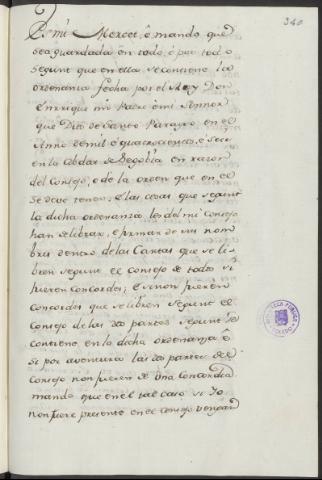 340
de mi Merced, é mando que
sea guardada en todo, é por todo
segunt que en ella se contiene la
ordenanza fecha por el Rey Don
Enrrique mio Padre é mi Sennor
que Dios dé Santo Parayso en el
Anno de mil é quatrocientos, é seis
en la Cibdat de Segobia en razon
del Consejo, é de la orden que en el
se deve tener, é las cosas que segunt
la dicha ordenanza los del mi Consejo
han de librar, é firmar de sus nom
bres dentro de las Cartas que se li
bren segunt el consejo de todos si
fueren concordes, é si non fueren
concordes que se libren segunt el
consejo de las dos partes segunt se
contiene en la dicha ordenanza é
si por aventura las dos partes del
Consejo non fueren de una concordia
mando que en el tal caso si Yo
non fuere presente en el consejo vengan